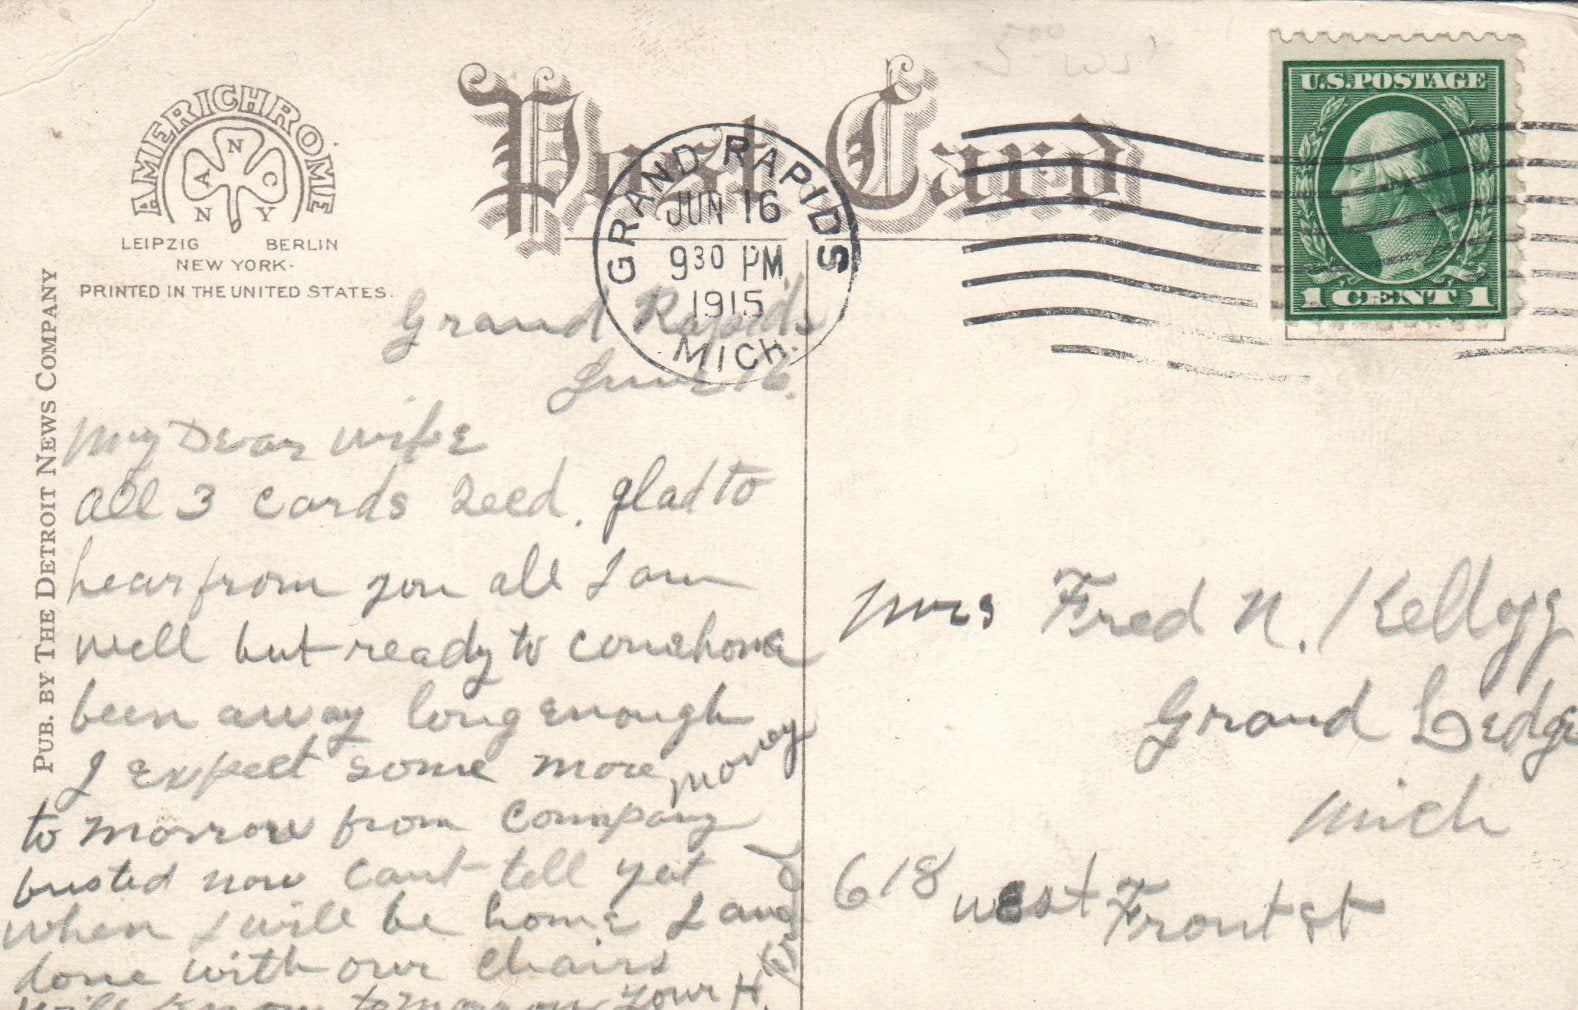 AMERICHROME
A N C
N Y
LEIPZIG BERLIN
NEW YORK.
PRINTED IN THE UNITED STATES.
PUB. BY THE DETROIT NEWS COMPANY
Post Card
GRAND RAPIDS
JUN 16
930 PM
1915
MICH.
U.S. POSTAGE
1 CENT 1
Grand Rapids
June 16.
My Dear Wife
all 3 cards Recd. glad to
hear from you all I am
well but ready to come home
been away long enough
I expect some more money
to morrow from Company
busted now cant tell yet
when I will be home I am
done with our chairs
will know to morrow your H.
Fred
Mrs Fred N. Kellogg
Grand Ledge
Mich
618 West Front St